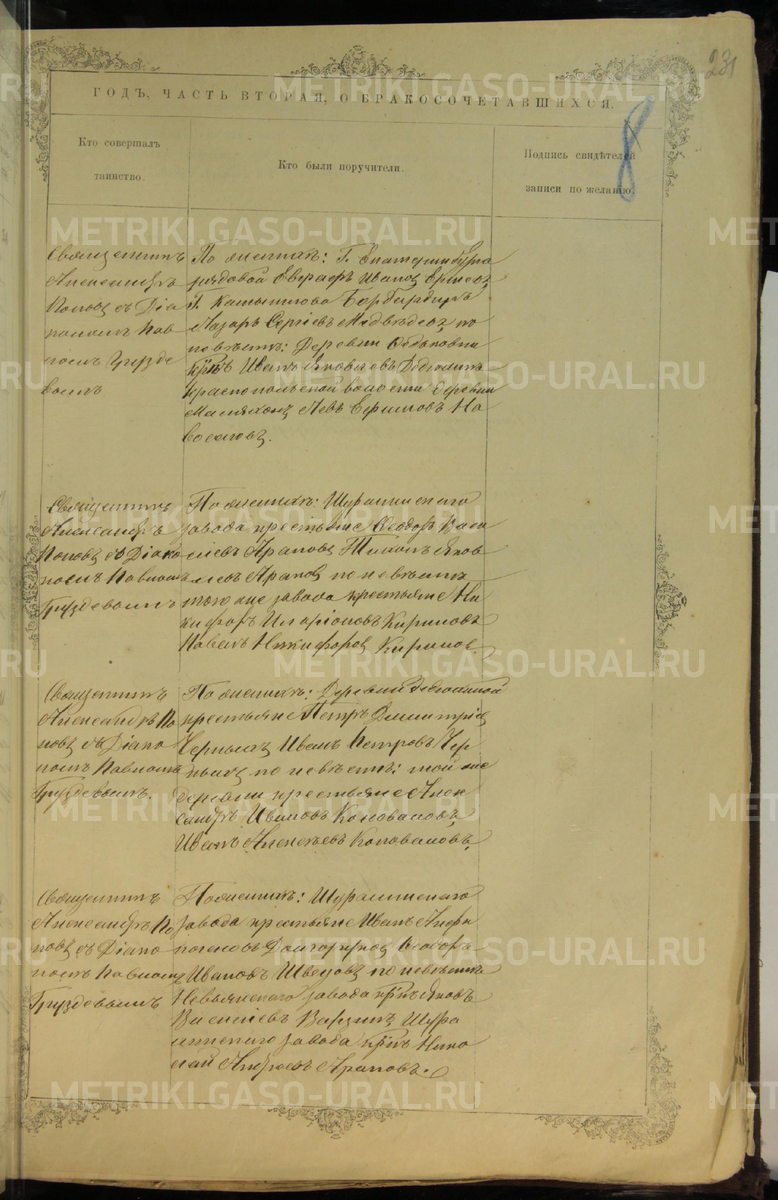 231
8
ГОДЪ, ЧАСТЬ ВТОРАЯ, О БРАКОСОЧЕТАВШИХСЯ.
Кто совершалъ
таинство.
Кто были поручители.
Подпись свидѣтелей
записи по желанію.
Священникъ
Александръ
Поповъ съ Діа
кономъ Пав
ломъ Груздe
вымъ
По женихѣ: Г. Екатеринбурга
рядовой Евграфъ Ивановъ
Г. Камышлова Бомбардиръ
Лазарь Сергѣевъ Медвѣдевъ, по
невѣстѣ: Деревни
крнъ Иванъ Яковлевъ
Краснопольской волости деревни
Левъ Ефимовъ Но
воселовъ.
Священникъ
Александръ
Поповъ съ Діако
номъ Павломъ
Груздевымъ
По женихѣ: Шуралинскаго
завода крестьяне Ѳеодоръ Васи
льевъ Араповъ Тихонъ Яков
левъ Араповъ по невѣстѣ
того же завода крестьяне Ни
кифоръ Иларіоновъ Кириловъ
Павелъ Никифоровъ Кирилов
Священникъ
Александръ По
повъ съ Діако
номъ Павломъ
Груздевымъ.
По женихѣ: Деревни
крестьяне Петръ Димитріев
Черныхъ Иванъ Петровъ Чер
ныхъ по невѣстѣ: той же
деревни крестьяне Алек
сандръ Ивановъ Коноваловъ,
Иванъ Алексѣевъ Коноваловъ,
Священникъ
Александръ По
повъ съ Діако
номъ Павломъ
Груздевымъ
По женихѣ: Шуралинскаго
завода крестьяне Иванъ
Долгоруков Ѳедоръ
Ивановъ Швецовъ по невѣстѣ
Невьянскаго завода крнъ Яковъ
Василіевъ Шура
линскаго завода крнъ Нико
лай Андреевъ Араповъ.
METRIKI.GASO-URAL.RU